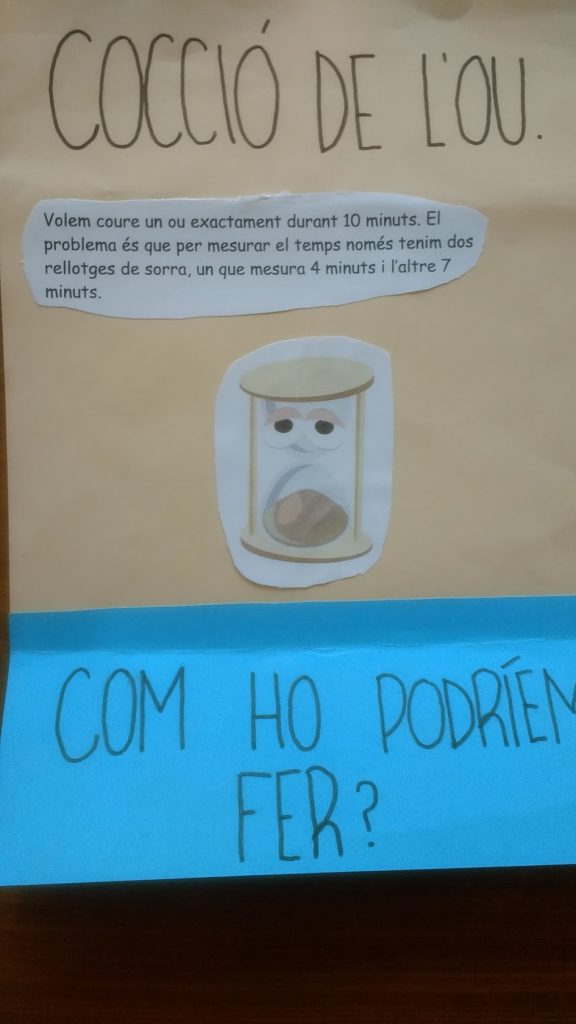 COCCIÓ DE L'OU.
Volem coure un ou exactament durant 10 minuts. El
problema és que per mesurar el temps només tenim dos
rellotges de sorra, un que mesura 4 minuts i l'altre 7
minuts.
COM HO PODRÍEM
FER?